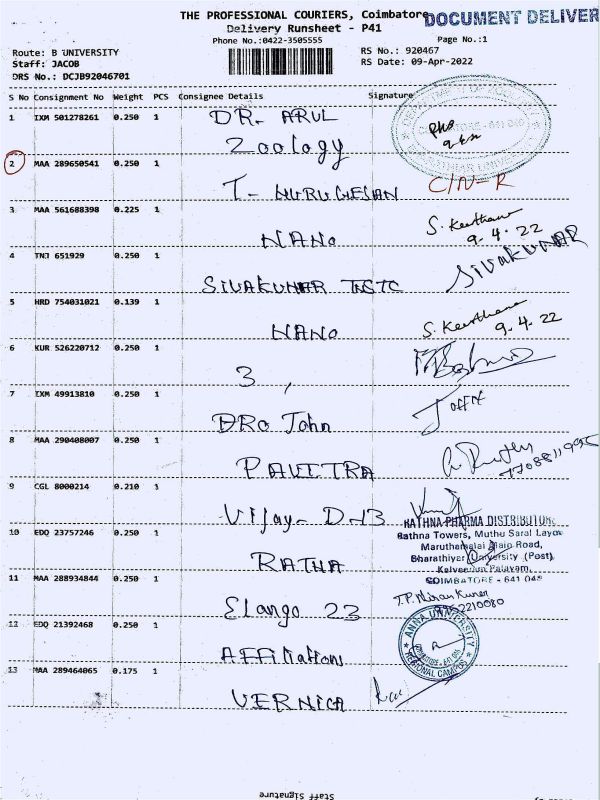 THE PROFESSIONAL COURIERS, Coimbatore
DOCUMENT DELIVER
Delivery Runsheet - P41
Phone No.:0422-3505555
Page No.:1
Route: B UNIVERSITY
RS No.: 920467
Staff: JACOB
RS Date: 09-Apr-2022
DRS No.: DCJB92046701
S No Consignment No Weight PCS Consignee Details Signature
1 IXM 501278261 0.250 1 DR. ARUL
Zoology
2 MAA 289650541 0.250 1
T- MURUGESAN C/N-R
3 MAA 561688398 0.225 1 S. Keerthana
NANO 9.4.22
4 TNJ 651929 0.250 1 SIVAKUMAR
SIVAKUMAR TNSTC
5 HRD 754031021 0.139 1 S. Keerthana
NANO 9.4.22
6 KUR 526220712 0.250 1
3,
7 IXM 49913810 0.250 1
DRO John
8 MAA 290408007 0.250 1
PAVITTRA
9 CGL 8000214 0.210 1
Vijay- D-13
RATHNA PHARMA DISTRIBUTORS
10 EDQ 23757246 0.250 1 Rathna Towers, Muthu Saral Layout
Maruthamalai Main Road,
RATNA Bharathiyar University (Post),
Kalveeram Palayam,
11 MAA 288934844 0.250 1 COIMBATORE - 641 046
Elango 23
12 EDQ 21392468 0.250 1 ANNA UNIVERSITY
Affiliations REGIONAL CAMPUS
13 MAA 289464065 0.175 1
VERNICA
Staff Signature